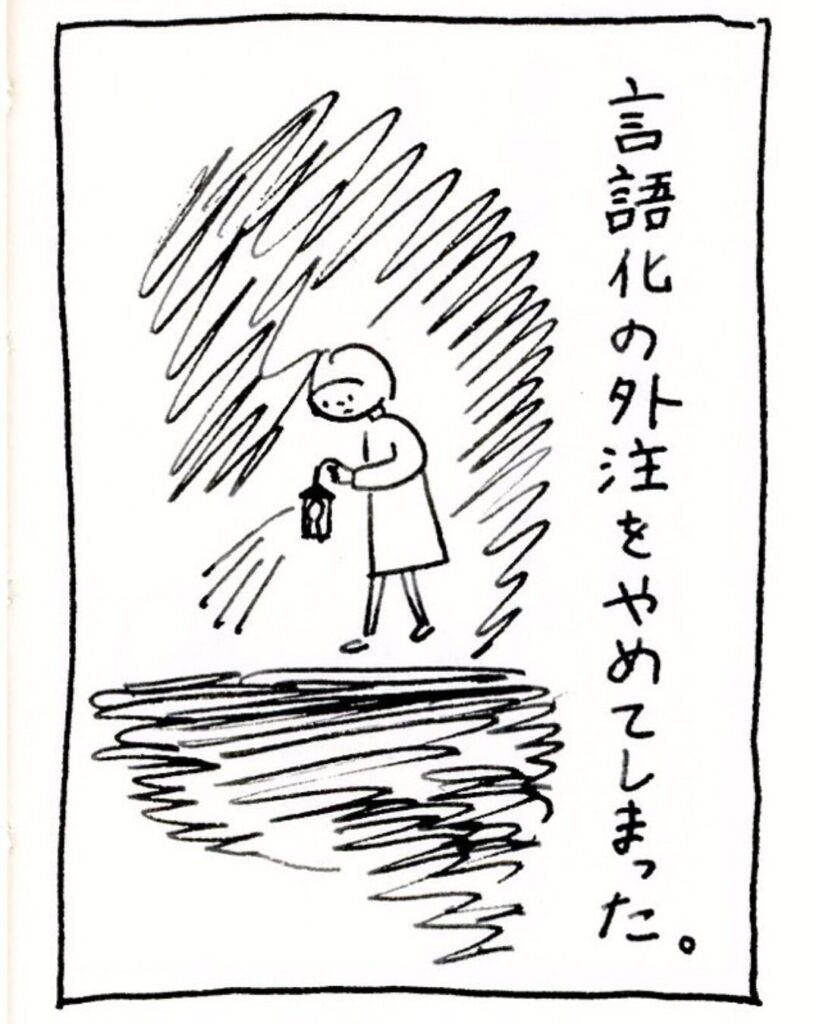 言語化の外注をやめてしまった。